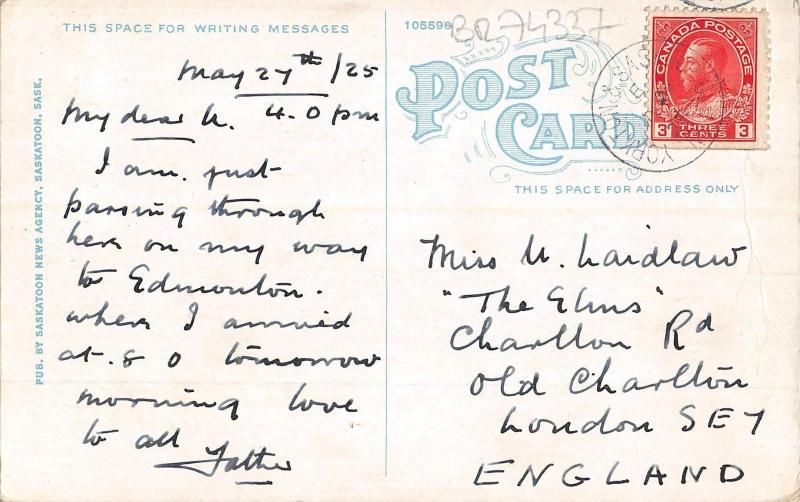 THIS SPACE FOR WRITING MESSAGES
May 27th /25
4.0 pm
My dear U.
I am just
passing through
here on my way
to Edmonton.
where I arrived
at. 8 0 tomorrow
morning love
to all Father
PUB. BY SASKATOON NEWS AGENCY, SASKATOON, SASK.
105598
BR74337
POST CARD
CANADA POSTAGE
THREE CENTS
3 3
THIS SPACE FOR ADDRESS ONLY
Miss U. Laidlaw
"The Elms"
Charlton Rd
Old Charlton
London SE7
ENGLAND